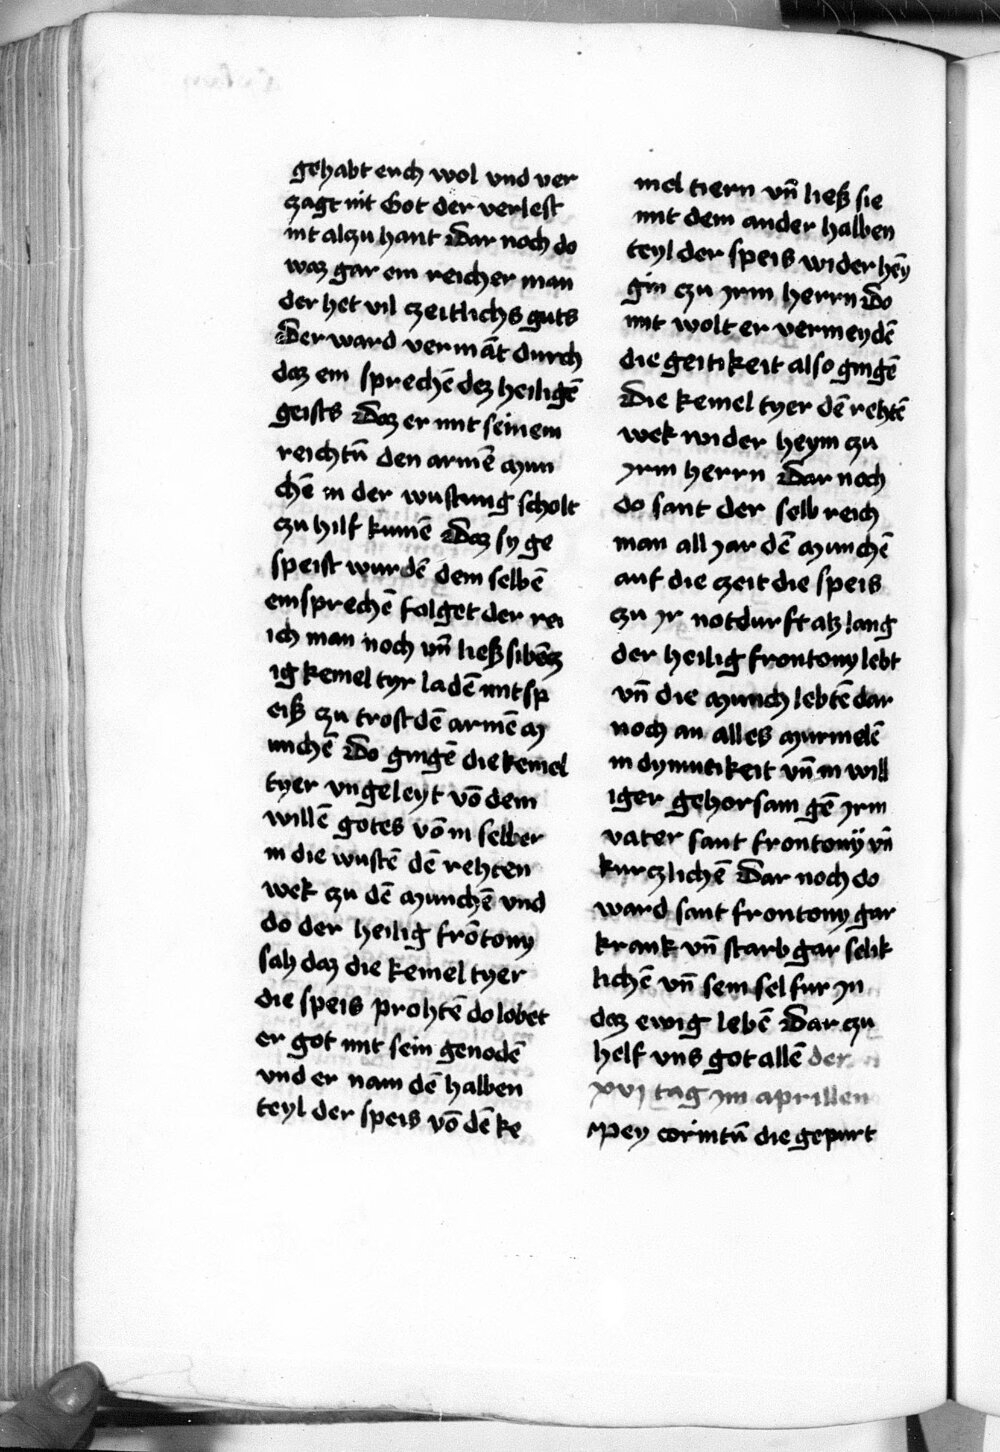 gehabt euch wol vnd ver
zagt nit Got der verlest
nit alzu hant Dar noch do
waz gar ein reicher man
der het vil czeitlichs guts
Der ward vermāt durch
daz ein sprechē dez heiligē
geists Daz er mit seinem
reichtū den armē mun
chē in der wustung scholt
czu hilf kumē Daz sy ge
speist wurdē dem selbē
einsprechē folget der rei
ich man noch vn̄ ließ sibēcz
ig kemel tyr ladē mit sp
eiß czu trost dē armē m
unchē Do gingē die kemel
tyer vngeleyt vō dem
willē gotes vō in selber
in die wustē dē rehten
wek czu dē munchē vnd
do der heilig frōtony
sah daz die kemel tyer
die speis prohtē do lobet
er got mit sein genodē
vnd er nam dē halben
teyl der speis vō dē ke
mel tiern vn̄ ließ sie
mit dem ander halben
teyl der speis wider hēy
gin czu yrm herrn Do
mit wolt er vermeydē
die geitikeit also gingē
Die kemel tyer dē rehtē
wek wider heym czu
yrm herrn Dar noch
do sant der selb reich
man all yar dē munchē
auf die czeit die speis
czu yr notdurft alz lang
der heilig frontony lebt
vn̄ die munch lebtē dar
noch an alles murmelē
in dymutikeit vn̄ in will
iger gehorsam gē yrm
vater sant frontonÿ vn̄
kurczlichē Dar noch do
ward sant frontony gar
krank vn̄ starb gar selik
lichē vn̄ sein sel fur yn
daz ewig lebē Dar czu
helf vns got allē der
xvj tag ym aprillen
Pey corintū die gepurt